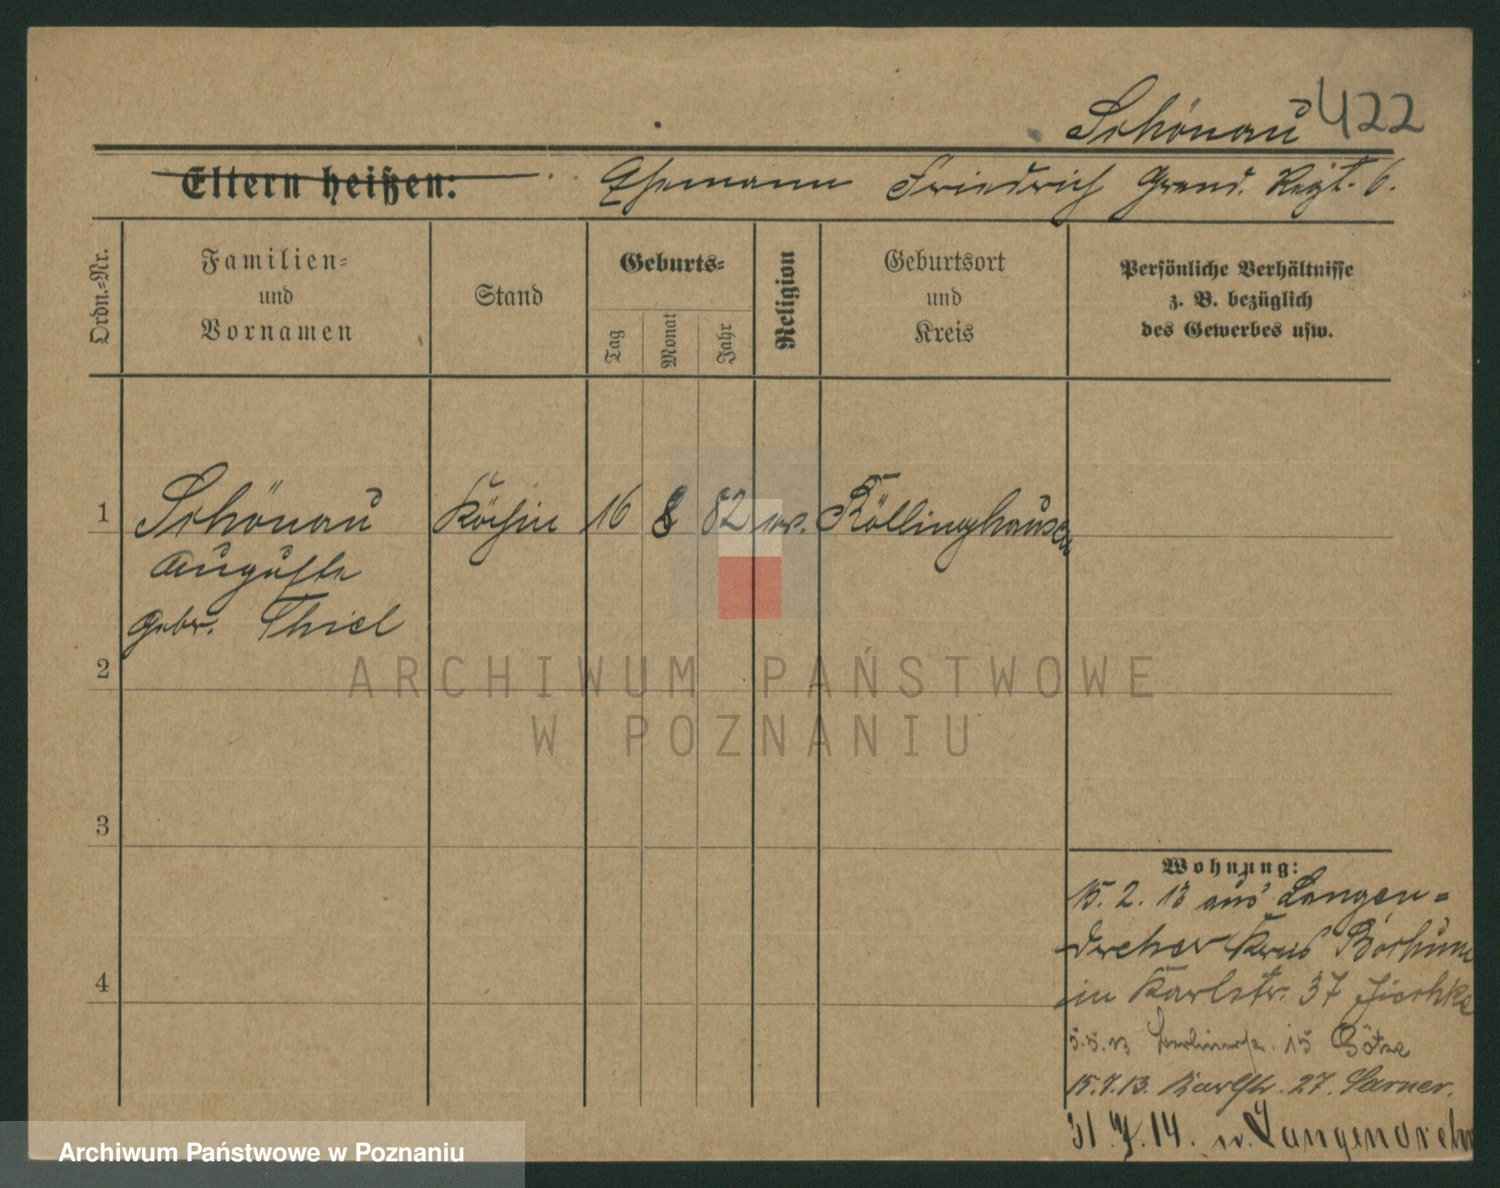 Schönau 422
Eltern heißen: Ehemann Friedrich Grend. Regt. 6.
Ordn.-Nr.
Familien-
und
Vornamen
Stand
Geburts-
Tag
Monat
Jahr
Religion
Geburtsort
und
Kreis
Persönliche Verhältnisse
z. B. bezüglich
des Gewerbes usw.
1 Schönau Köchin 16 8 82 Röllinghausen
Auguste
gebr. Thiel
2
3
4
Wohnung:
15. 2. 13 aus Langen-
dreher Kreis Bochum
in Karlstr. 37
5.5.13 Berlinerstr. 15 Götze
15.7.13. Karlstr. 27.
31.7.14. n. Langendreh
ARCHIWUM PAŃSTWOWE
W POZNANIU
Archiwum Państwowe w Poznaniu